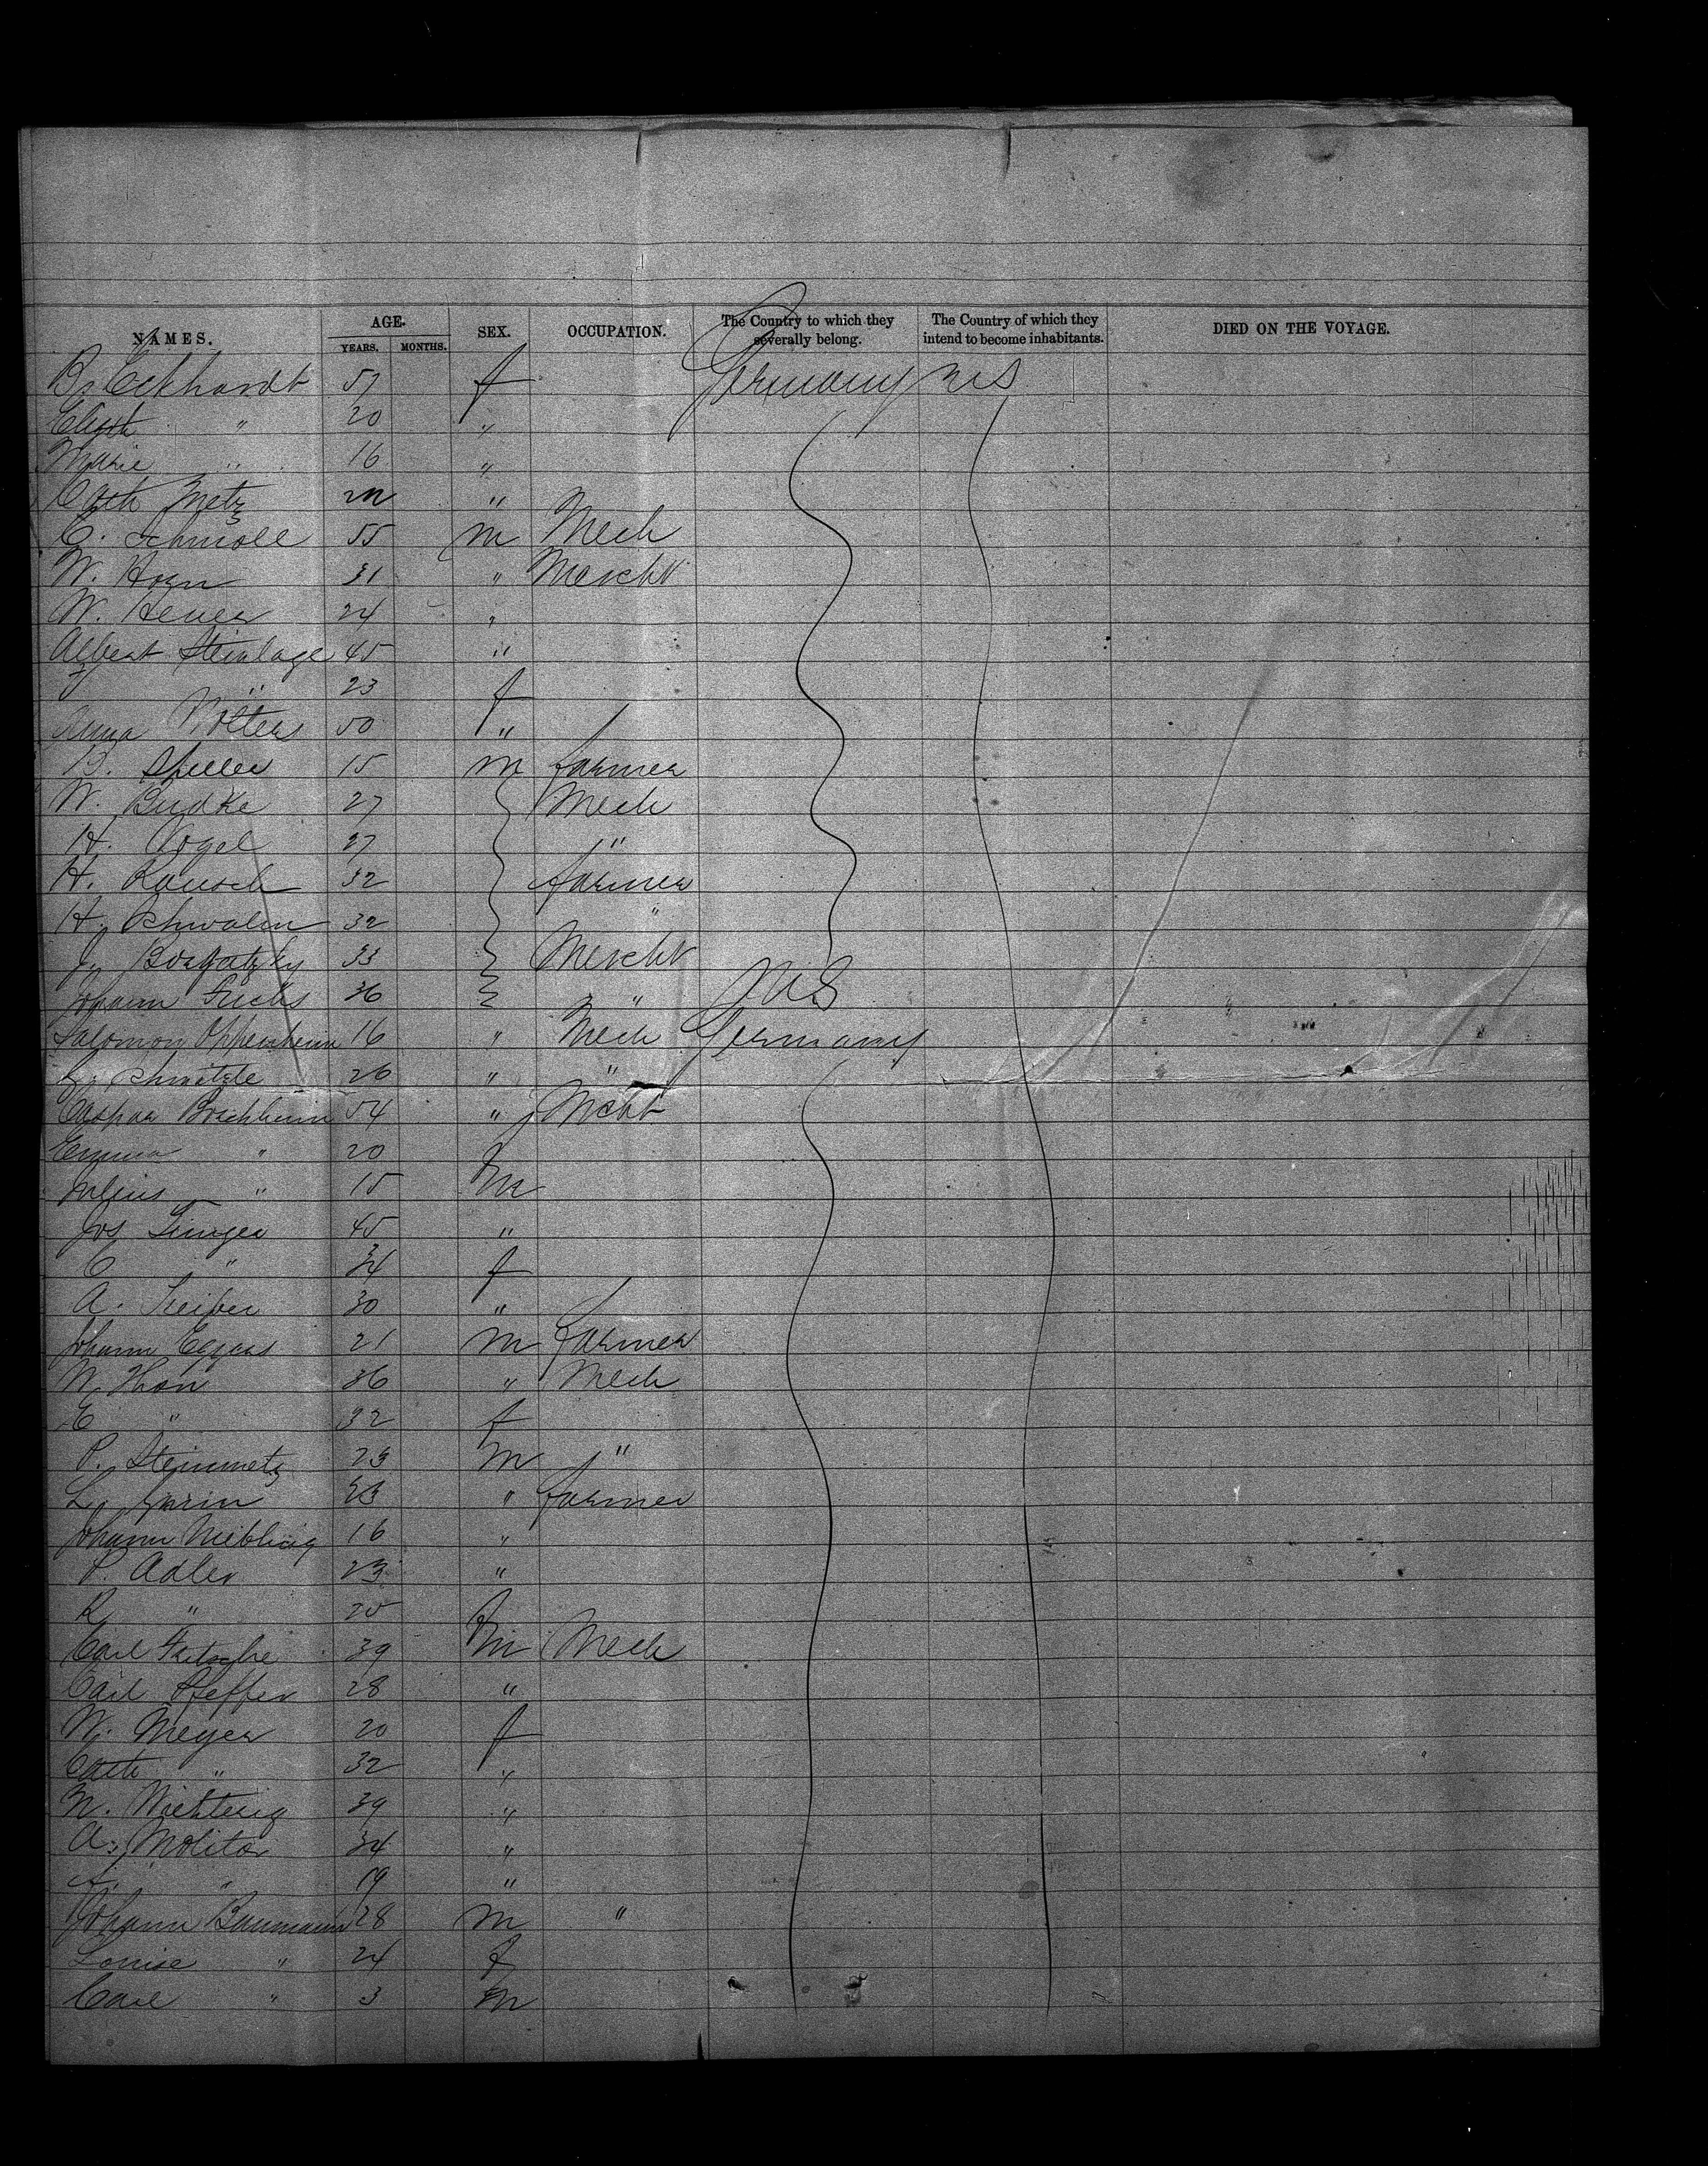 NAMES. AGE. SEX. OCCUPATION. The Country to which they severally belong. The Country of which they intend to become inhabitants. DIED ON THE VOYAGE.
YEARS. MONTHS.
B. Eckhardt 57 f Germany US
Elisth " 20 "
Marie " 16 "
Cath Metz "
C. Schmoll 55 m Mech
W. Horn 31 " Mercht
W. Heuer 24 "
Albert Steinlage 45 "
" 23 f
Anna Wolters 50 "
B. Speller 15 m farmer
W. Budke 27 Mech
H. Vogel 27 "
H. Rausch 32 farmer
H. Schwalm 32 "
J. 33 Mercht
Johann Fuchs 36 " US
Salomon Oppenheim 16 " Mech Germany
Schmitzle 26 " "
Caspar 54 " Mcht
Emma " 20
Julius " 15 m
Jos 45 "
C " 34 f
A. 30 "
Johann Eggers 21 m farmer
N. Thon 36 " Mech
E " 32 f
P. Steinmetz 23 m "
L. " farmer
Johann Niebling 16 "
P. Adler 23 "
R " 20 f
Carl Fritsche 39 m Mech
Carl Pfeffer 28 "
W. Meyer 20 f
Cath " 32 "
N. 39 "
A. Molitor 34 "
" 19 "
Johann Baumann 28 m "
Louise " 24 f
Carl " 3 m